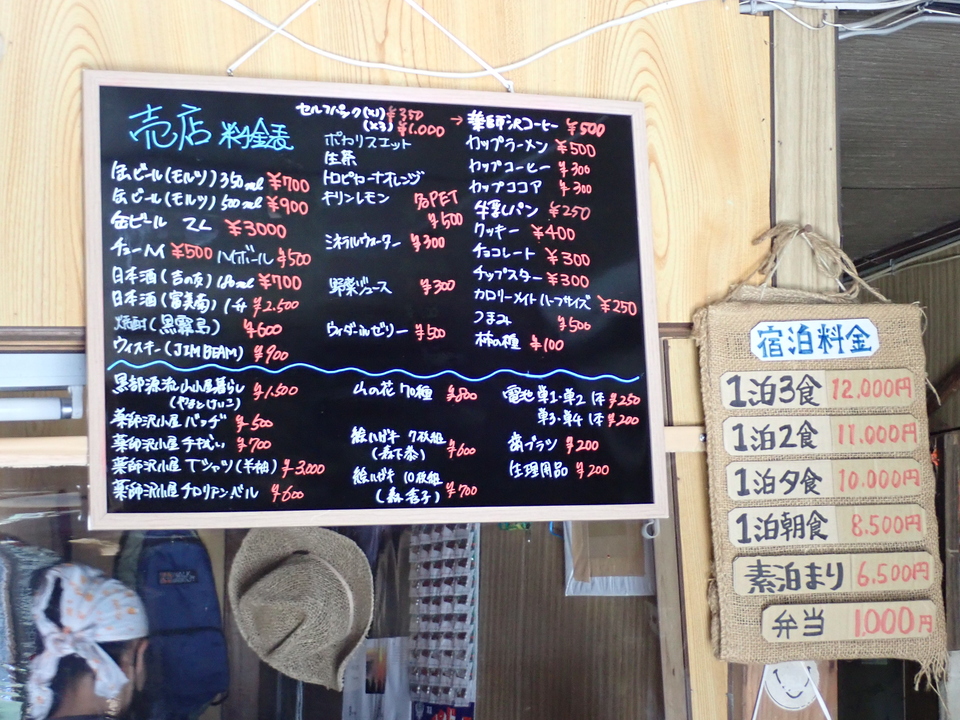 売店 料金表
缶ビール(モルツ)350ml ¥700
缶ビール(モルツ)500ml ¥900
缶ビール 2L ¥3000
チューハイ ¥500 ハイボール ¥500
日本酒(吉の友)180ml ¥700
日本酒(富美菊)1合 ¥2,500
焼酎(黒霧島) ¥600
ウィスキー(JIM BEAM) ¥900
セルフパック(×1) ¥350
(×3) ¥1,000
ポカリスエット
生茶
トロピカーナオレンジ
キリンレモン 各PET
¥500
ミネラルウォーター ¥300
野菜ジュース ¥300
ウィダーinゼリー ¥500
→薬師沢コーヒー ¥500
カップラーメン ¥500
カップコーヒー ¥300
カップココア ¥300
牛乳パン ¥250
クッキー ¥400
チョコレート ¥300
チップスター ¥300
カロリーメイトハーフサイズ ¥250
つまみ ¥500
柿の種 ¥100
黒部源流山小屋暮らし ¥1,500
(やまとけいこ)
薬師沢小屋 バッヂ ¥500
薬師沢小屋 手ぬぐい ¥700
薬師沢小屋 Tシャツ(半袖) ¥3,000
薬師沢小屋 チロリアンベル ¥600
山の花 70種 ¥800
絵ハガキ 7枚組 ¥600
絵ハガキ 10枚組 ¥700
電池 単1・単2 1本 ¥250
単3・単4 1本 ¥200
歯ブラシ ¥200
生理用品 ¥200
宿泊料金
1泊3食 12,000円
1泊2食 11,000円
1泊夕食 10,000円
1泊朝食 8,500円
素泊まり 6,500円
弁当 1,000円